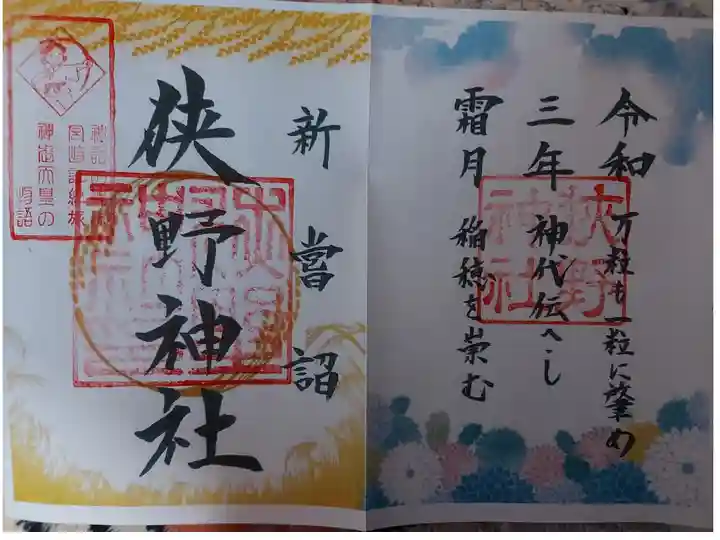 令和 万粒も一粒に肇め
三年 神代伝へし
霜月 稲穂を崇む
狭野
神社
新嘗詣
狭野神社
神武天皇の物語